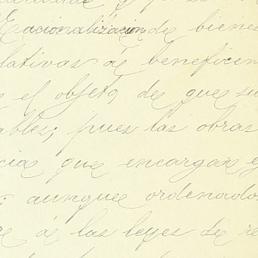 Nacionalización de bienes
lativas de beneficen
e el objeto de que su
ables; pues las obras
cia que encargar e
; aunque ordenado
e á las leyes de re